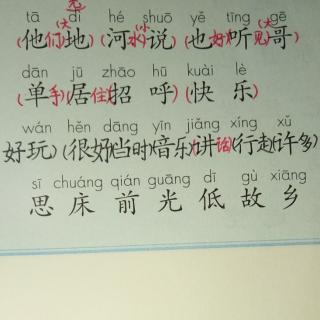 tā dì hé shuō yě tīng gē
他们(大地)(河水)(小说)(也好)听见(大哥)
dān jū zhāo hū kuài lè
(单手)(居住)招 呼)(快 乐)
wán hěn dāng yīn jiǎng xíng xǔ
好玩)(很好)(当时)(音乐)(讲话)(行走)(许多)
sī chuáng qián guāng dī gù xiāng
思 床 前 光 低 故 乡